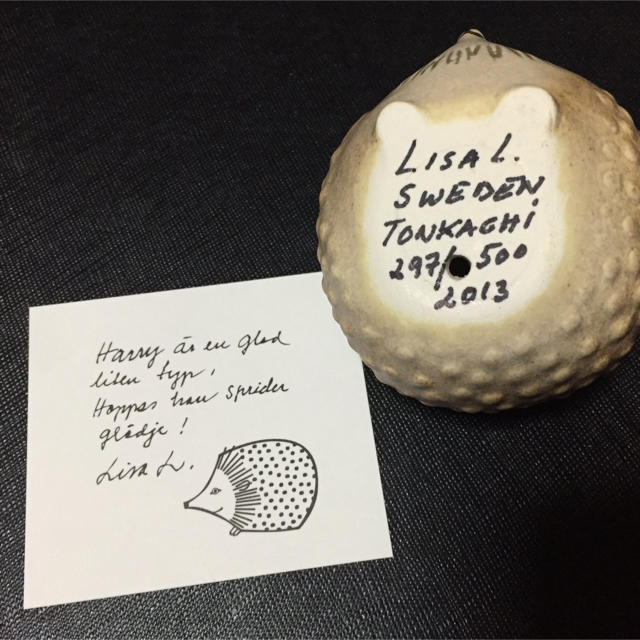 LISA L.
SWEDEN
TONKACHI
297/500
2013
Harry är en glad
liten typ,
Hoppas han sprider
glädje!
Lisa L.